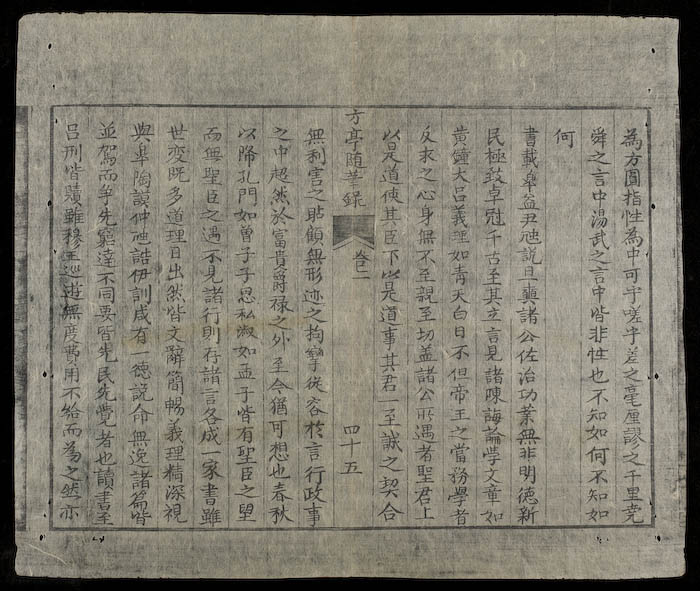 為方圓指性為中可乎嗟乎差之毫厘謬之千里堯
舜之言中湯武之言中皆非性也不知如何不知如
何
書載皐益尹虺說旦奭諸公佐治功業無非明德新
民極致卓冠千古至其立言見諸陳誨論學文章如
黃鐘大呂義理如青天白日不但帝王之當務學者
反求之心身無不至親至切盖諸公所遇者聖君上
以是道使其臣下以是道事其君一至誠之契合
方亭随筆錄
卷二
四十五
無利害之貼顧無形迹之拘攣從容於言行政事
之中超然於富貴爵祿之外至今猶可想也春秋
以歸孔門如曾子子思私淑如孟子皆有聖臣之望
而無聖臣之遇不見諸行則存諸言各成一家書雖
世変既多道理日出然皆文辭簡暢義理精深視
與皐陶謨仲虺誥伊訓咸有一德說命無逸諸篇皆
並駕而爭先窮達不同要皆先民先覺者也讀書至
呂刑皆贖雖穆王巡遊無度費用不給而為之然亦